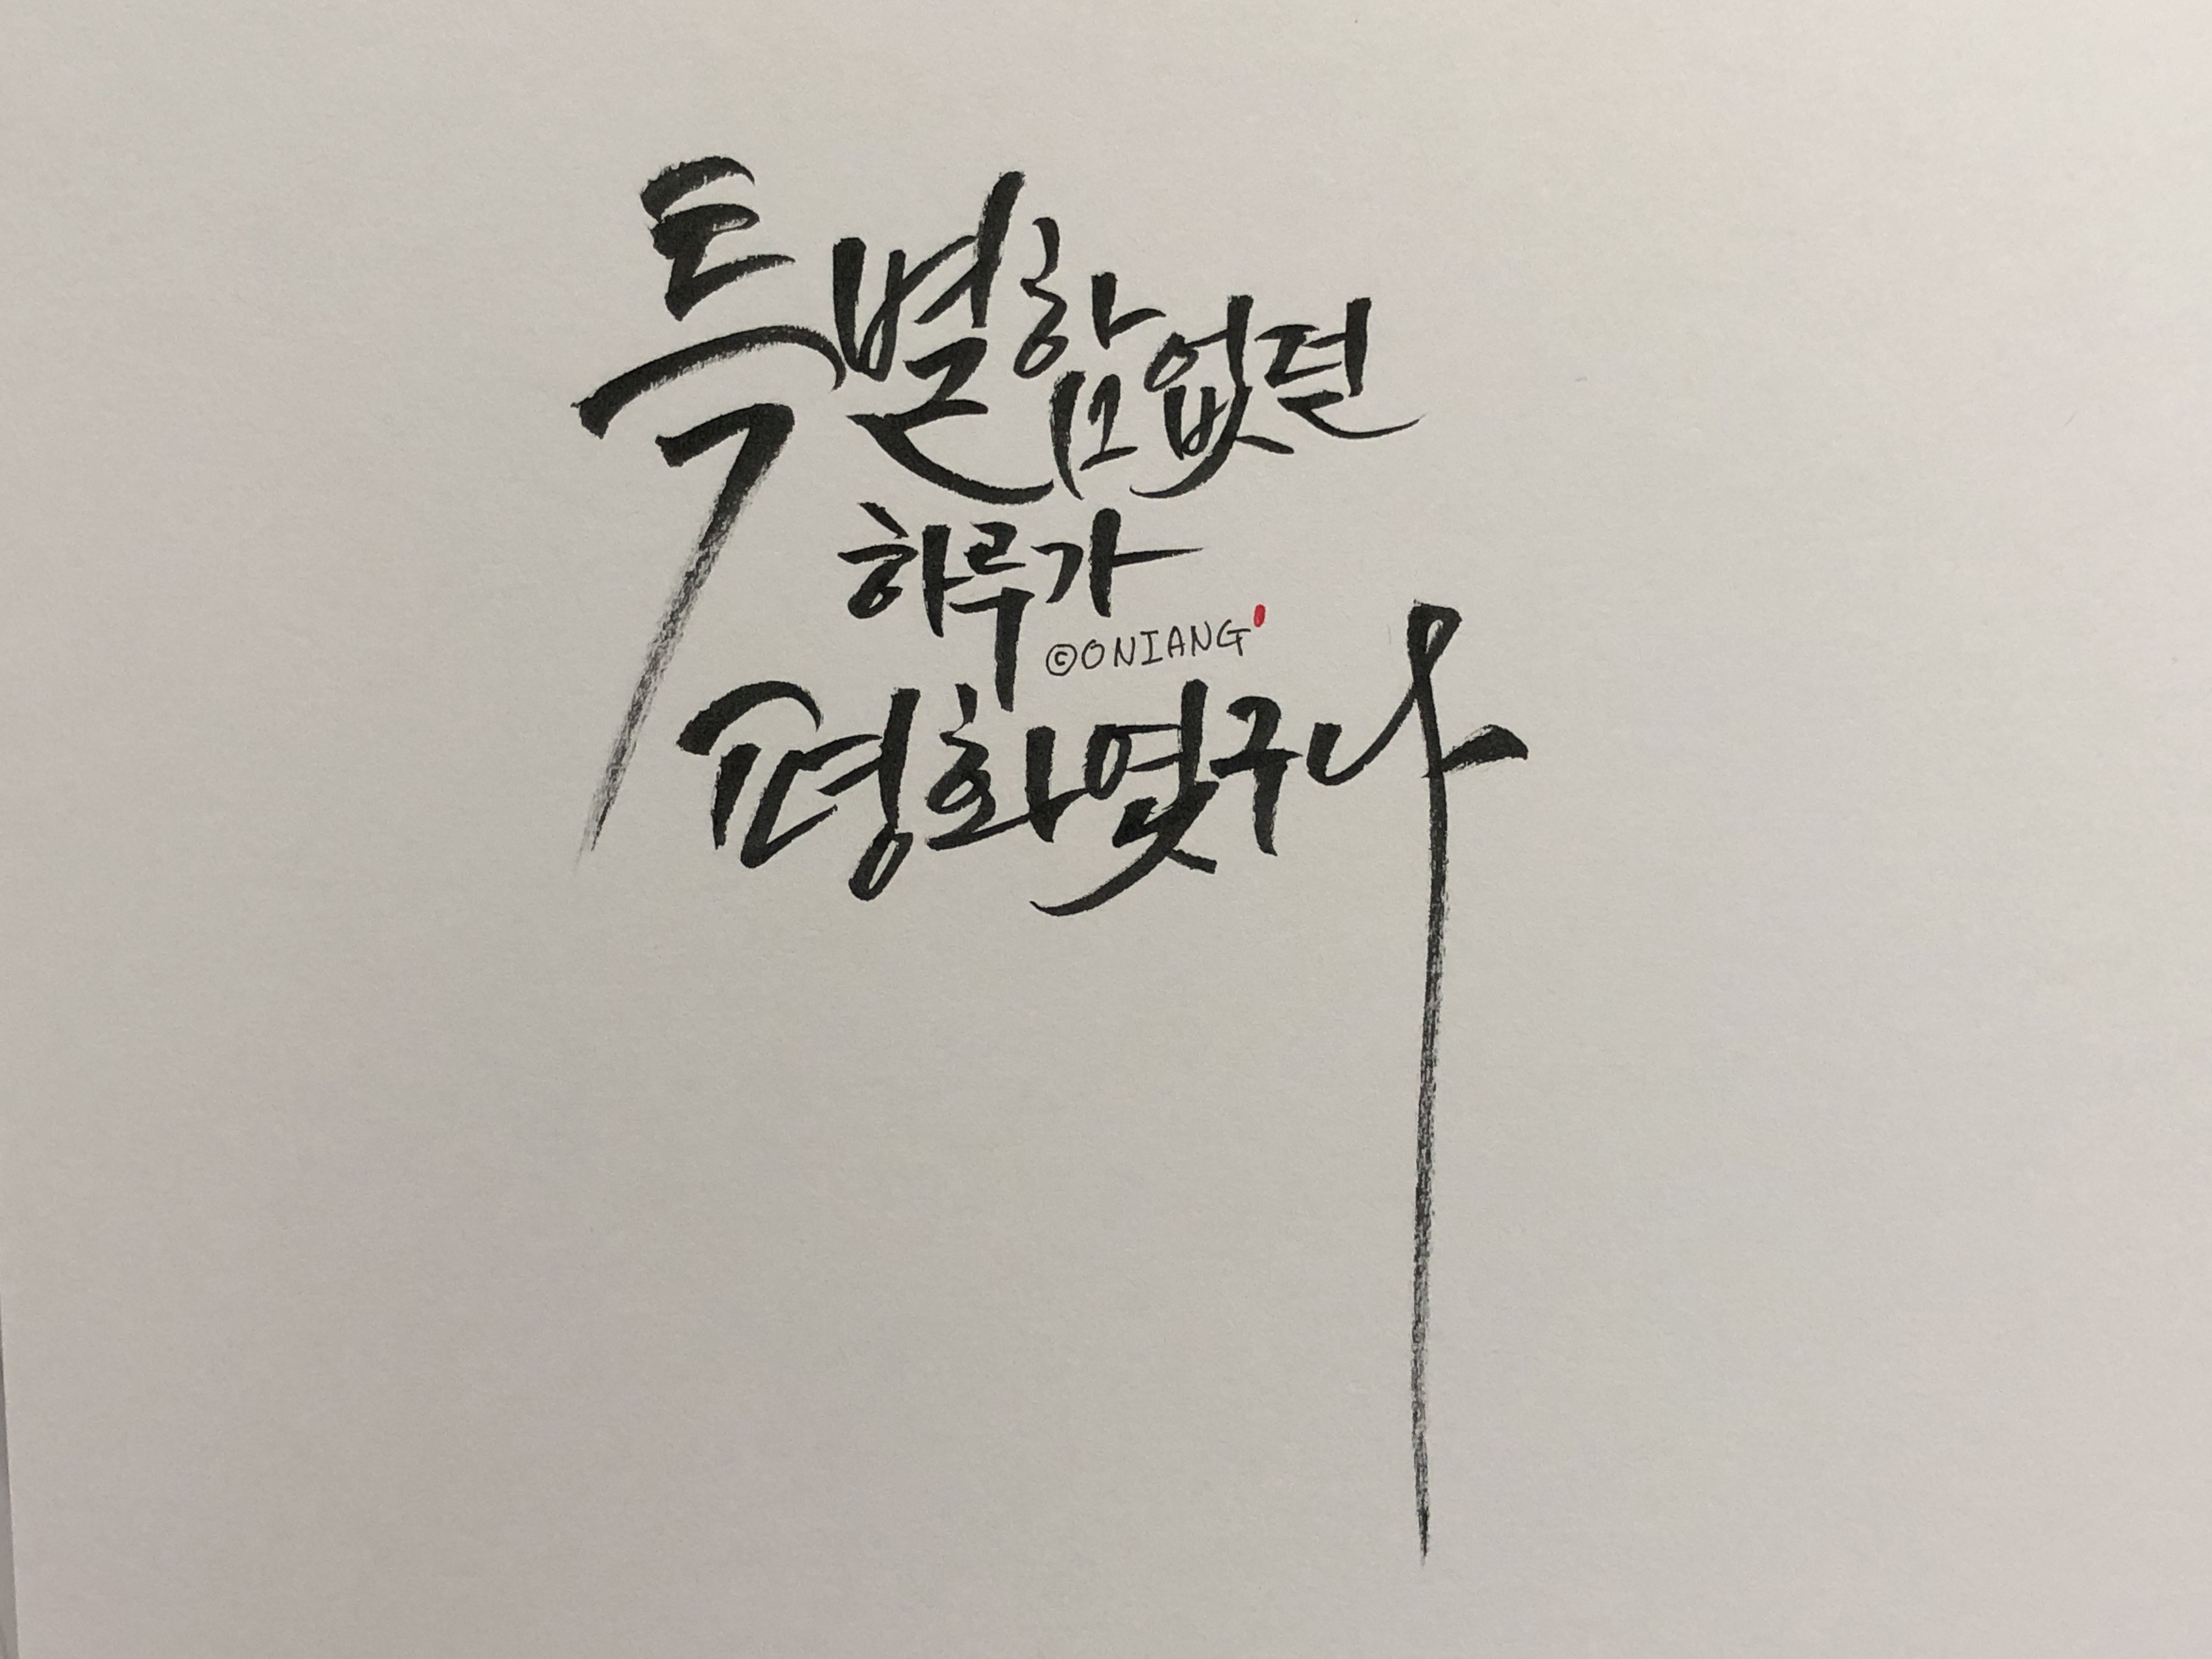 특별함 없던
하루가
©ONIANG
평화였구나